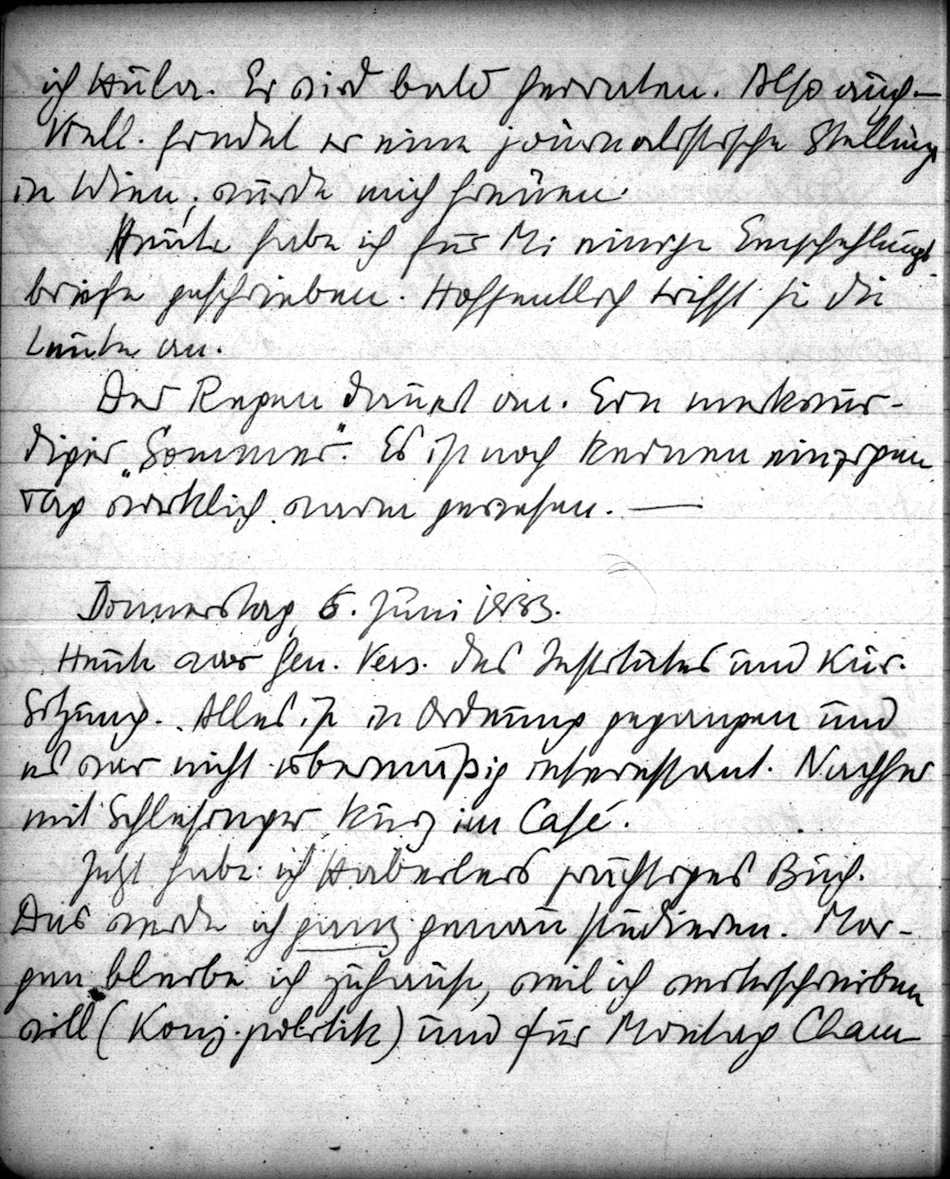 ich Hula. Er wird bald heiraten. Also auch –
Viell. findet er eine journalistische Stellung
in Wien; würde mich freuen.
Heute habe ich für Mi einige Empfehlungs-
briefe geschrieben. Hoffentlich trifft sie die
Leute an.
Der Regen dauert an. Ein merkwür-
diger „Sommer". Es ist noch keinen einzigen
Tag wirklich warm gewesen. —
Donnerstag, 6. Juni 1933.
Heute war Gen. Vers. des Institutes und Kur.
Sitzung. Alles ist in Ordnung gegangen und
es war nicht übermäßig interessant. Nachher
mit Schlesinger kurz im Café.
Jetzt habe ich Haberlers prächtiges Buch.
Das werde ich ganz genau studieren. Mor-
gen bleibe ich zuhause, weil ich weiterschreiben
will (Konj.politik) und für Montag Cham